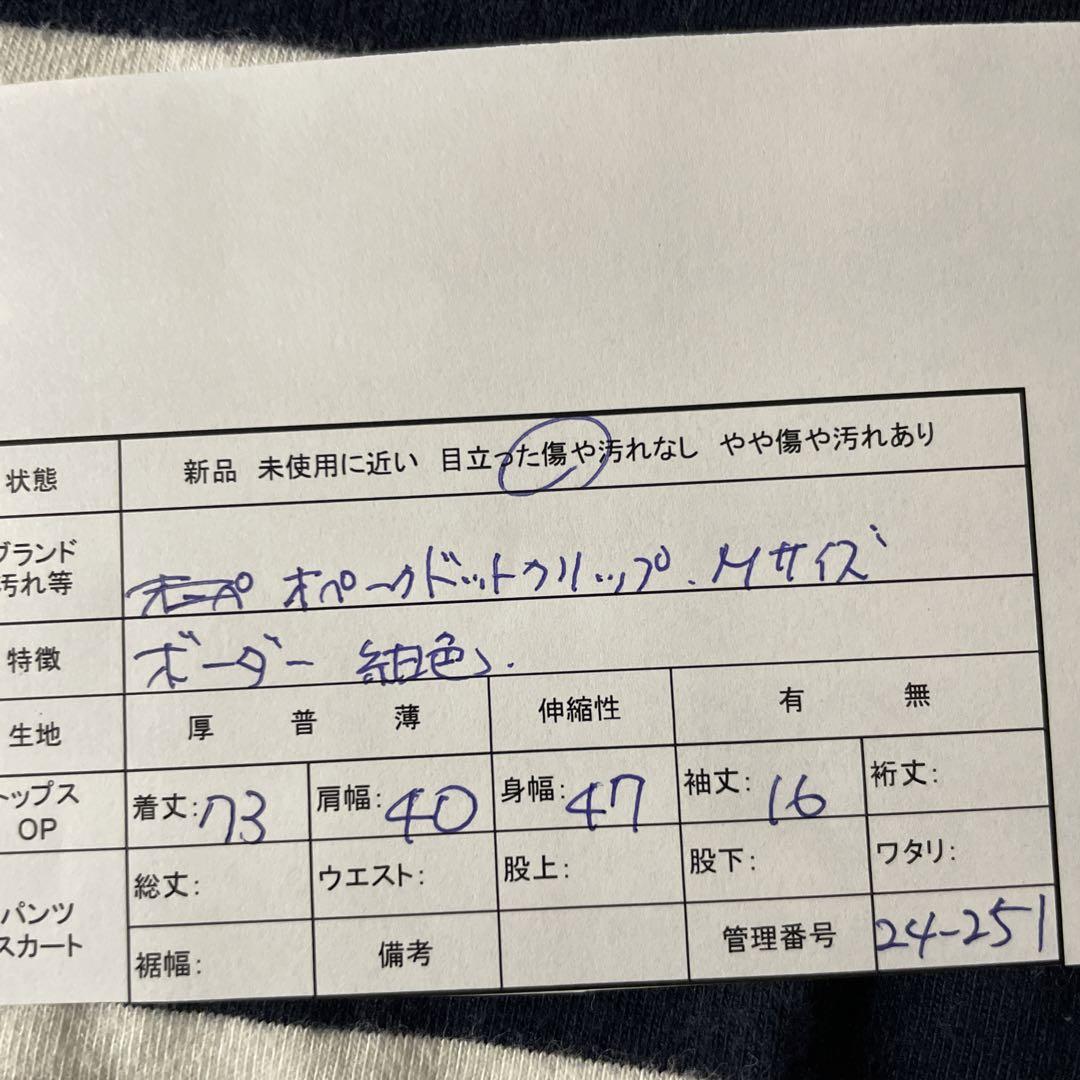 状態 新品 未使用に近い 目立った傷や汚れなし やや傷や汚れあり
ブランド
汚れ等 オペークドットクリップ. Mサイズ
特徴 ボーダー 紺色、.
生地 厚 普 薄 伸縮性 有 無
トップス
OP 着丈:73 肩幅:40 身幅:47 袖丈:16 裄丈:
パンツ
スカート 総丈: ウエスト: 股上: 股下: ワタリ:
裾幅: 備考 管理番号 24-251